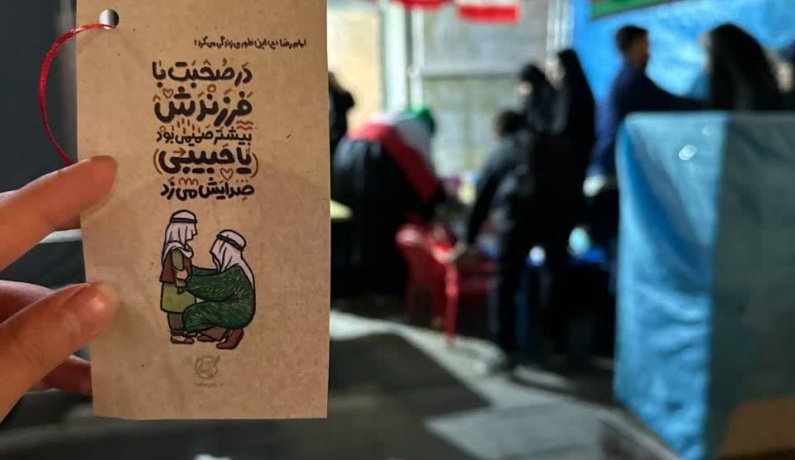 امام رضا (ع) این طوری زندگی می‌کرد:
در صُحبَت با
فَرزَندَش
بیشتر صَمیمی بود
(یا حَبیبی)
صِدایَش می زَد